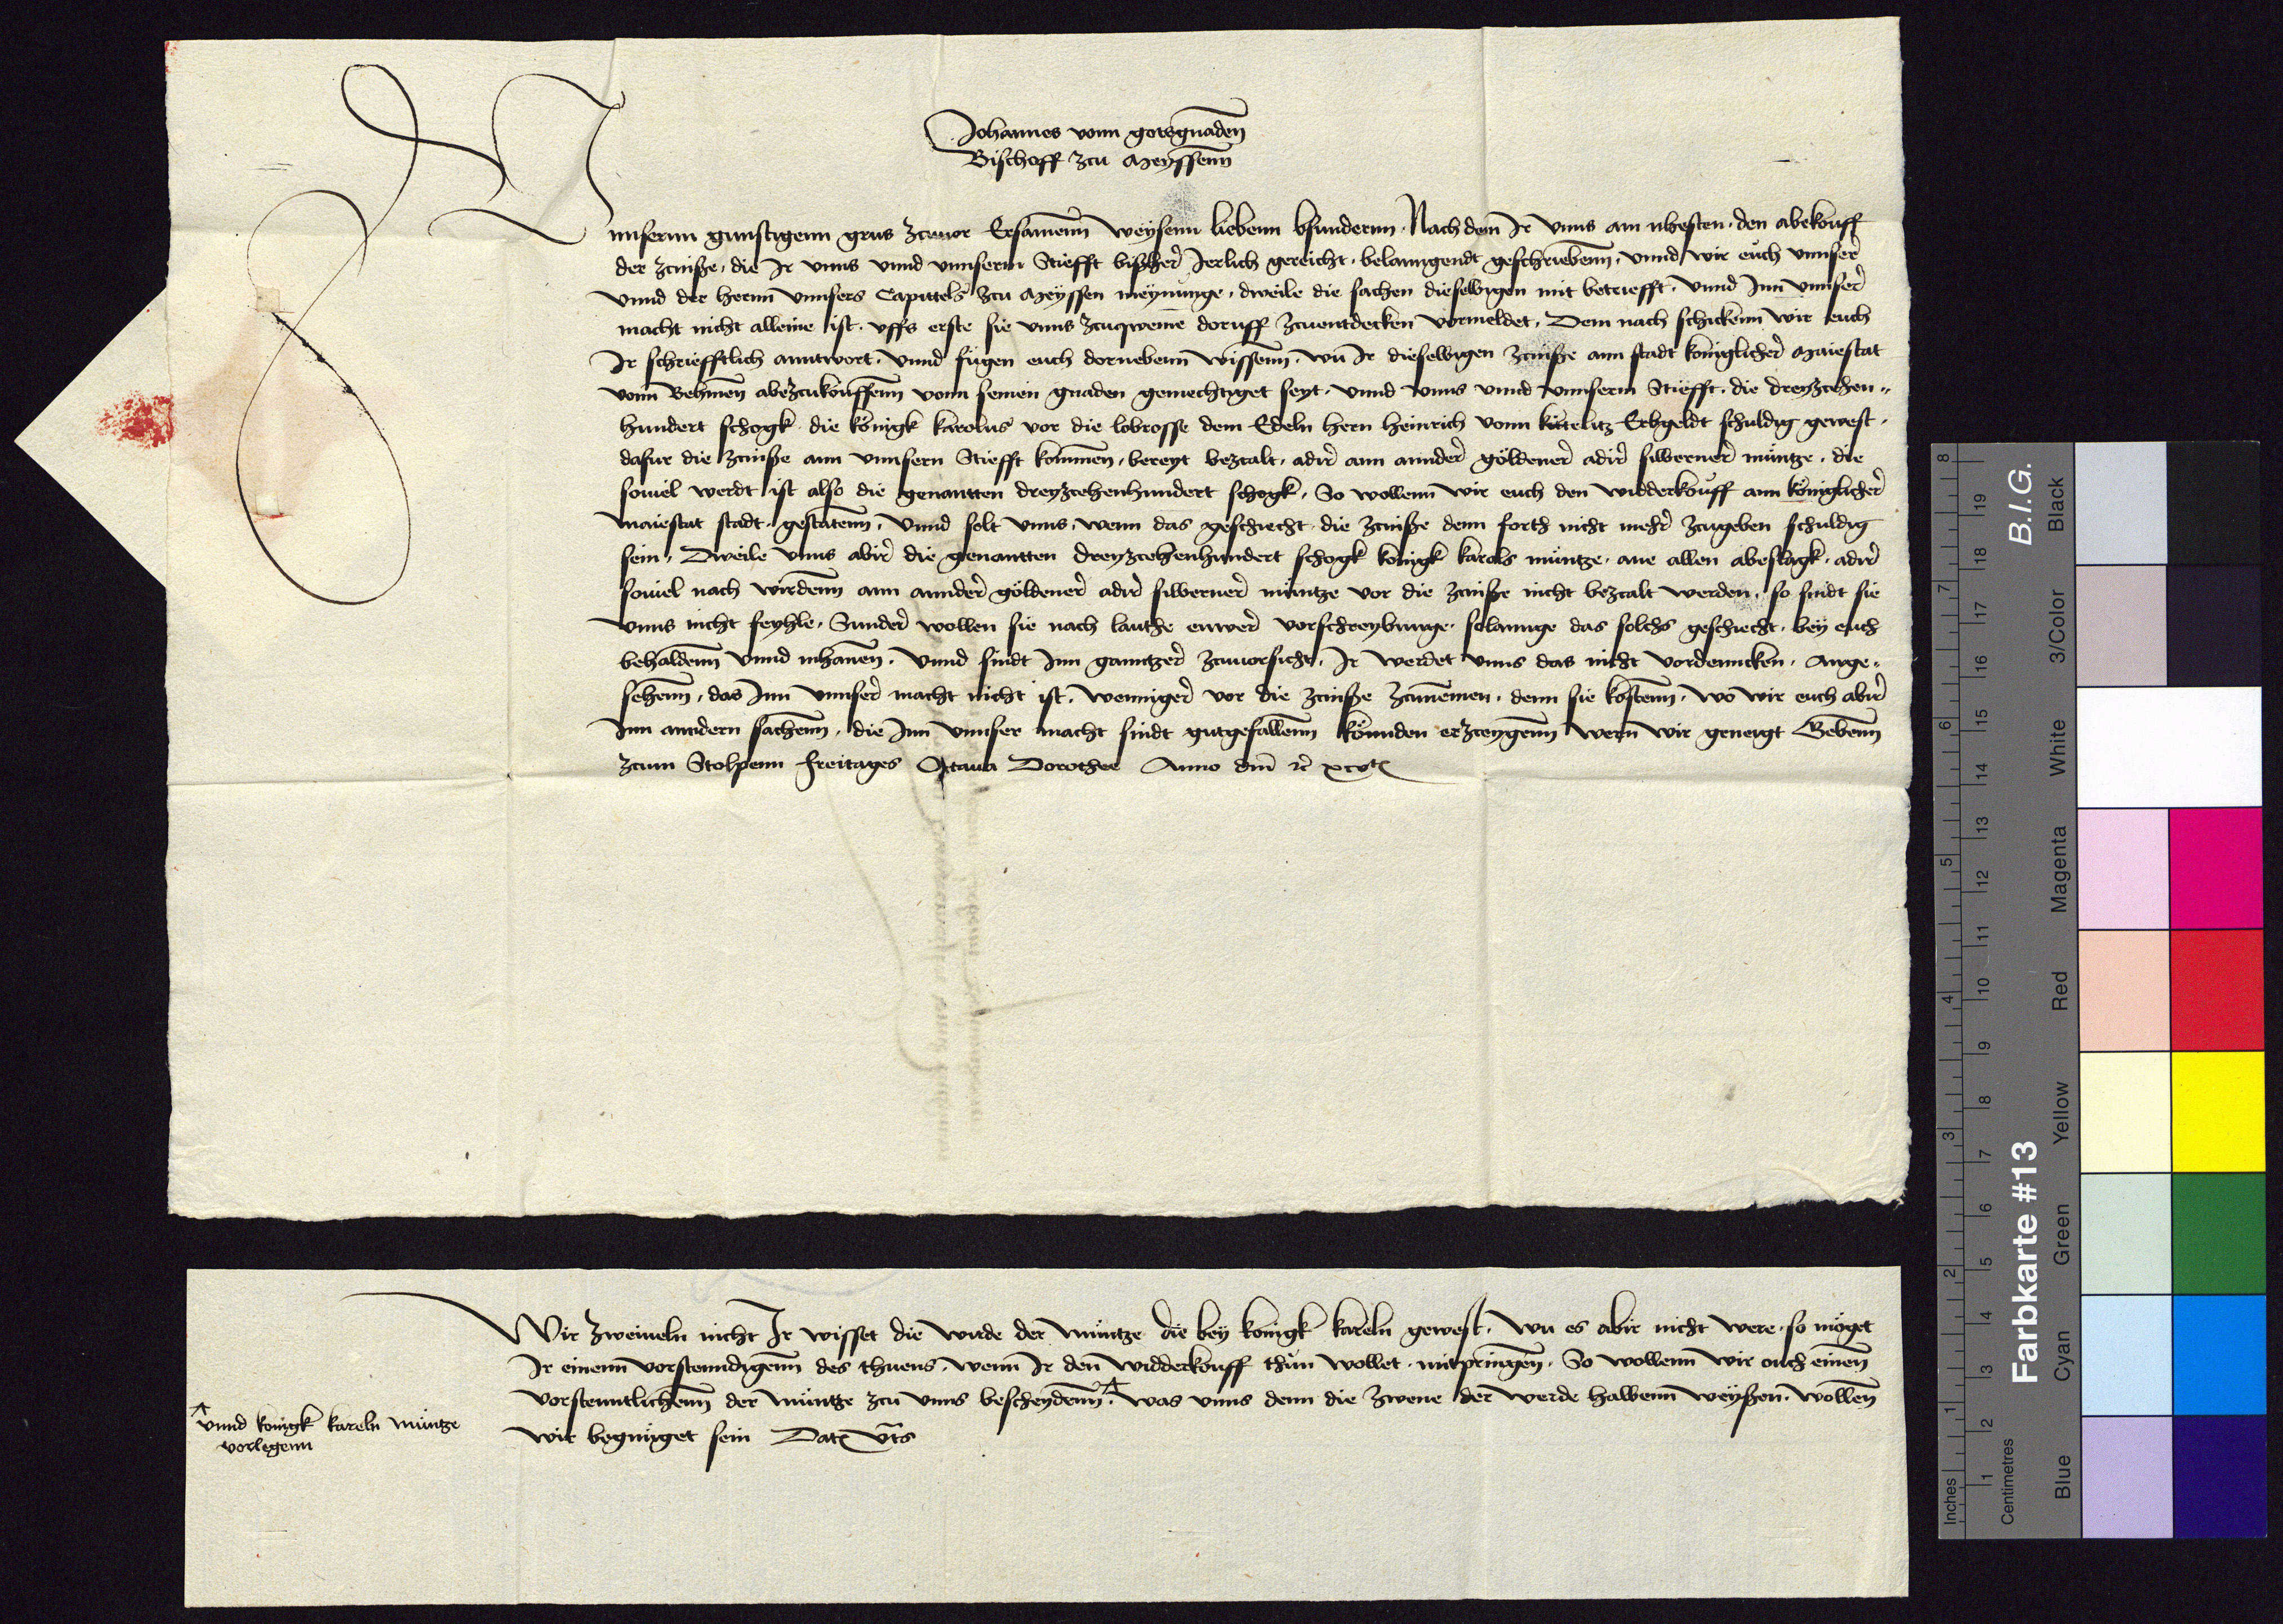 Johannes vonn gotsgnaden
Bischoff zcu Meyssenn
Unnsernn gunstigenn grus zcuuor Ersamenn weysenn liebenn bsundernn. Nach dem Ir unns am nhesten. den abekouff
der zcinße. die Ir unns unnd unnserm Stiefft bißher Ierlich gereicht. belanngendt geschriebenn. unnd wir euch unnser
unnd der hernn unnsers Capittels zcu Meyssen meynunge. dweile die sachen dieselwigen mit betriefft. unnd Inn unnser
macht nicht alleine ist. uffs erste sie unns zcuqweme doruff zcuentdecken vormeldet. Dem nach schickenn wir euch
Ir schriefftlich anntwort. unnd fugen euch dornebenn wissenn. wu Ir dieselwigen zcinße ann stadt koniglicher Maiestat
vonn Behmen abezcukouffenn vonn seinen gnaden gemechtiget seyt. unnd unns unnd unnserm Stiefft. die dreyzcehen„
hundert schogk die königk karolus vor die lobrosse dem Edeln hern heinrich vonn kittelitz Erbgeldt schuldig gewest.
dafur die zcinße ann unnsern Stiefft kommen. bereyt bezcalt. adir ann annder göldener adir silwerner müntze. die
souiel werdt ist also die genantten dreyzcehenhundert schogk. So wollenn wir euch den widderkouff ann königlicher
maiestat stadt. gestatenn. unnd solt unns. wenn das geschiecht die zcinße denn forth nicht mehr zcugeben schuldig
sein. Dweile unns abir die genantten dreyzcehenhundert schogk konigk karols müntze. ane allen abeslagk. adir
souiel nach wirdenn ann annder göldener adir silwerner müntze vor die zcinße nicht bezcalt werden. so sindt sie
unns nicht feyhle. Sunder wollen sie nach lauthe euwer vorschreybunge. solannge das solchs geschiecht. bey euch
behaldenn unnd inhauen. unnd sindt Inn ganntzer zcuuorsicht. Ir werdet unns das nicht vordenncken. Ange„
sehenn. das Inn unnser macht nicht ist. wenniger vor die zcinße zcunemen. denn sie kostenn. wo wir euch abir
Inn anndern sachenn. die Inn unnser macht sindt gutgefallenn könnden erzceygenn wern wir geneigt Gebenn
zcum Stolpenn freitages Octaua Dorothee Anno dm̄ rc̄ xcv
Wir zweiueln nicht Ir wisset die wirde der müntze die bey konigk kareln gewest. wu es abir nicht were. so möget
Ir einenn vorstenndigenn des thuens. wenn Ir den widderkouff thun wollet. mitpringen. So wollenn wir ouch einen
vorstenntlichenn der müntze zcu unns bescheydenn. was unns denn die zwene der werde halbenn weyßen. wollen
unnd konigk kareln müntze
vorlegenn
wir begnuget sein Dat ut̄s
B.I.G.
Farbkarte #13
Inches 1 2 3 4 5 6 7 8
Centimetres 1 2 3 4 5 6 7 8 9 10 11 12 13 14 15 16 17 18 19
Blue Cyan Green Yellow Red Magenta White 3/Color Black